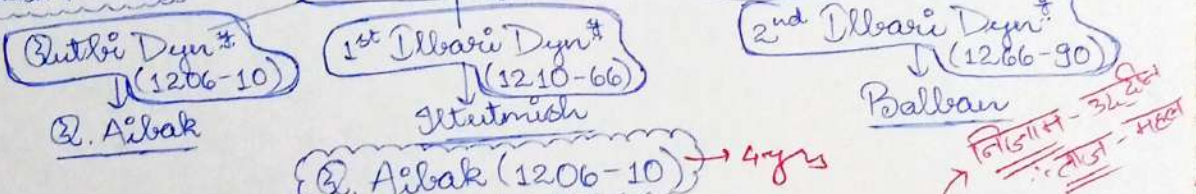 Qutbi Dyn# (1206-10)
Q. Aibak
1st Ilbari Dyn# (1210-66)
Iltutmish
2nd Ilbari Dyn# (1266-90)
Balban
Q. Aibak (1206-10) → 4 yrs
निजाम -
ताज - महल